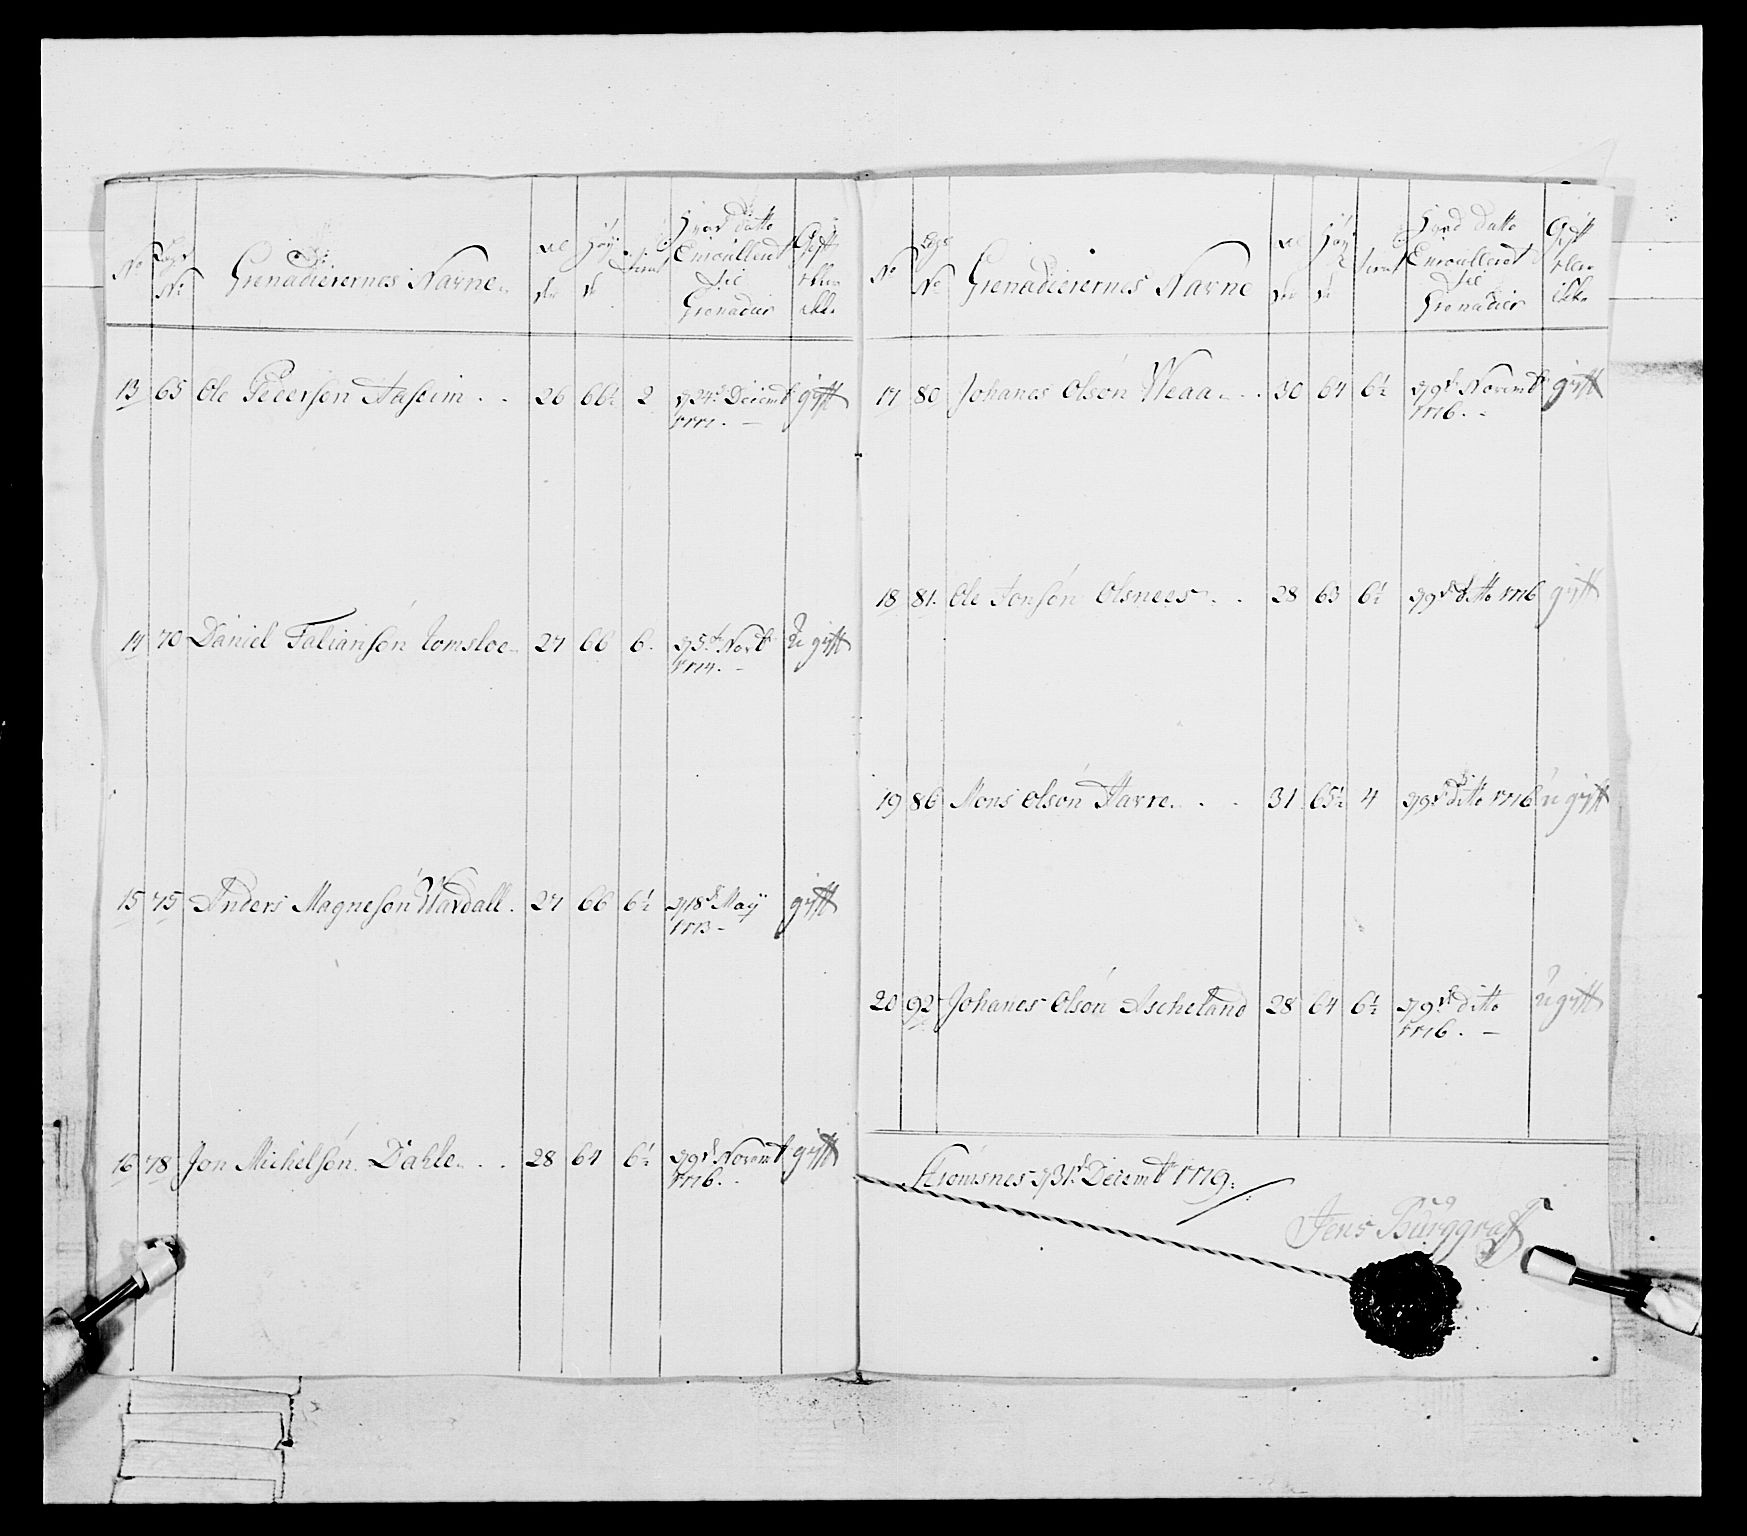 No Lægs No Grenadierernes Navne Al der Høy de tient Hvad Datto Enroulleret til Grenadier Gift eller ikke
13 65 Ole Pedersen Aaseim . . 26 66½ 2 d 24de Decembr 1777. gift
14 70 Daniel Taliansen Tomsloe 27 66 6. d 5te Novbr 1774. u gift
15 75 Anders Magnesøn Wardall. 27 66 6½ d 18de May 1773 gift
16 78 Jon Michelsøn Dahle . . 28 64 6½ d 9de Novembr 1776. gift
No Lægs No Grenadierernes Navne Al der Høy de tient Hvad Datto Enroulleret til Grenadier Gift eller ikke
17 80 Johanes Olsøn Weaa . . 30 64 6½ d 9de Novembr 1776. gift
18 81. Ole Jonsøn Olsnees . . 28 63 6½ d 9de ditto 1776 gift
19 86 Mons Olsøn Aarre . . 31 65½ 4 d 9de ditto 1776 u gift
20 92 Johanes Olsøn Ascheland 28 64 6½ d 9de ditto 1776. u gift
d 31te Decembr 1779.
Jens Burggraf